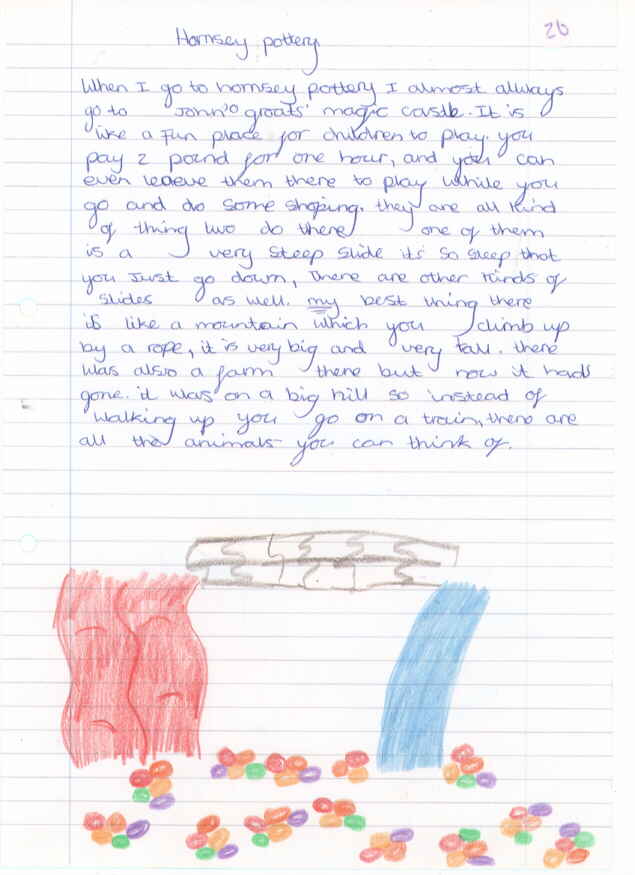 26
Hornsey pottery
When I go to hornsey pottery I almost allways
go to John'o groats' magic castle. It is
like a fun place for children to play. you
pay 2 pound for one hour, and you can
even leave them there to play while you
go and do some shoping. they are all kind
of thing two do there one of them
is a very steep slide its so steep that
you just go down, There are other kinds of
slides as well. my best thing there
is like a mountain which you climb up
by a rope, it is very big and very tall. there
was also a farm there but now it had
gone. it was on a big hill so instead of
walking up you go on a train, there are
all the animals you can think of.